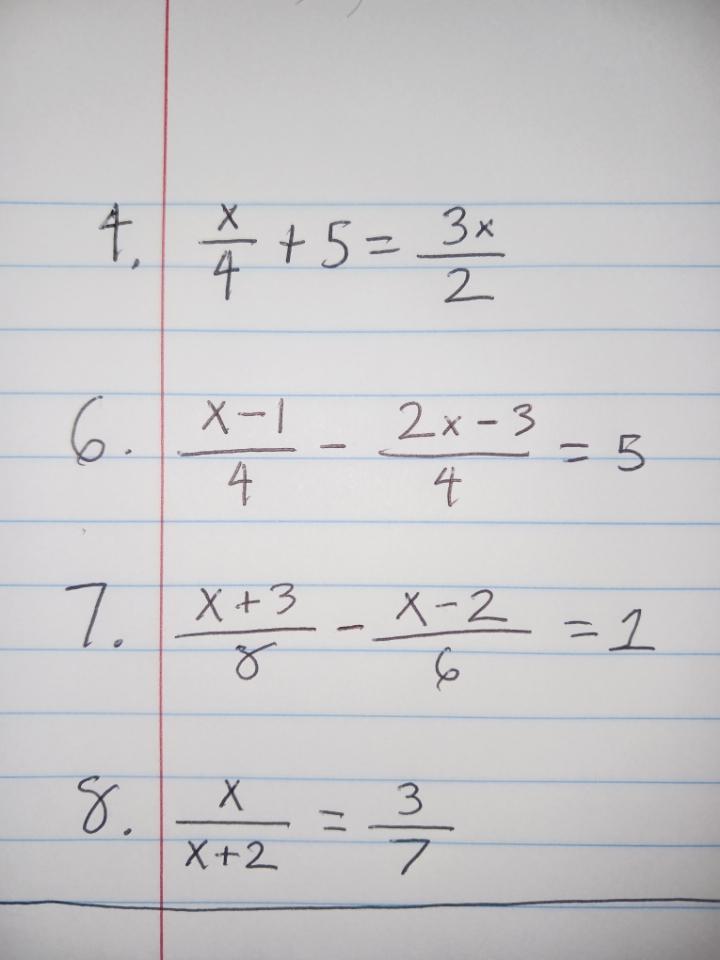 4. x/4 + 5 = 3x/2
6. (x-1)/4 - (2x-3)/4 = 5
7. (x+3)/8 - (x-2)/6 = 1
8. x/(x+2) = 3/7